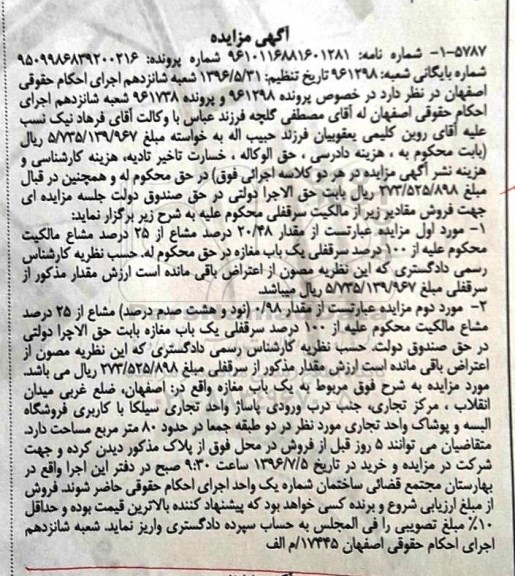 آگهی مزایده
۵۷۸۷-۱- شماره نامه: ۹۶۱۰۱۱۶۸۸۱۶۰۱۲۸۱ شماره پرونده: ۹۵۰۹۹۸۶۸۳۹۲۰۰۲۱۶
شماره بایگانی شعبه: ۹۶۱۲۹۸ تاریخ تنظیم: ۱۳۹۶/۵/۳۱ شعبه شانزدهم اجرای احکام حقوقی
اصفهان در نظر دارد در خصوص پرونده ۹۶۱۲۹۸ و پرونده ۹۶۱۷۳۸ شعبه شانزدهم اجرای
احکام حقوقی اصفهان له آقای مصطفی گلچه فرزند عباس با وکالت آقای فرهاد نیک نسب
علیه آقای روبن کلیمی یعقوبیان فرزند حبیب اله به خواسته مبلغ ۵/۷۳۵/۱۳۹/۹۶۷ ریال
(بابت محکوم به ، هزینه دادرسی ، حق الوکاله ، خسارت تاخیر تادیه، هزینه کارشناسی و
هزینه نشر آگهی مزایده در هر دو کلاسه اجرائی فوق) در حق محکوم له و همچنین در قبال
مبلغ ۲۷۳/۵۲۵/۸۹۸ ریال بابت حق الاجرا دولتی در حق صندوق دولت جلسه مزایده ای
جهت فروش مقادیر زیر از مالکیت سرقفلی محکوم علیه به شرح زیر برگزار نماید:
۱- مورد اول مزایده عبارتست از مقدار ۲۰/۴۸ درصد مشاع از ۲۵ درصد مشاع مالکیت
محکوم علیه از ۱۰۰ درصد سرقفلی یک باب مغازه در حق محکوم له. حسب نظریه کارشناس
رسمی دادگستری که این نظریه مصون از اعتراض باقی مانده است ارزش مقدار مذکور از
سرقفلی مبلغ ۵/۷۳۵/۱۳۹/۹۶۷ ریال میباشد.
۲- مورد دوم مزایده عبارتست از مقدار ۰/۹۸ (نود و هشت صدم درصد) مشاع از ۲۵ درصد
مشاع مالکیت محکوم علیه از ۱۰۰ درصد سرقفلی یک باب مغازه بابت حق الاجرا دولتی
در حق صندوق دولت. حسب نظریه کارشناس رسمی دادگستری که این نظریه مصون از
اعتراض باقی مانده است ارزش مقدار مذکور از سرقفلی مبلغ ۲۷۳/۵۲۵/۸۹۸ ریال می باشد.
مورد مزایده به شرح فوق مربوط به یک باب مغازه واقع در: اصفهان، ضلع غربی میدان
انقلاب ، مرکز تجاری، جنب درب ورودی پاساژ واحد تجاری سیلکا با کاربری فروشگاه
البسه و پوشاک واحد تجاری مورد نظر در دو طبقه جمعا در حدود ۸۰ متر مربع مساحت دارد.
متقاضیان می توانند ۵ روز قبل از فروش در محل فوق از پلاک مذکور دیدن کرده و جهت
شرکت در مزایده و خرید در تاریخ ۱۳۹۶/۷/۵ ساعت ۹:۳۰ صبح در دفتر این اجرا واقع در
بهارستان مجتمع قضائی ساختمان شماره یک واحد اجرای احکام حقوقی حاضر شوند. فروش
از مبلغ ارزیابی شروع و برنده کسی خواهد بود که پیشنهاد کننده بالاترین قیمت بوده و حداقل
۱۰٪ مبلغ تصویبی را فی المجلس به حساب سپرده دادگستری واریز نماید. شعبه شانزدهم
اجرای احکام حقوقی اصفهان ۱۷۴۴۵/م الف